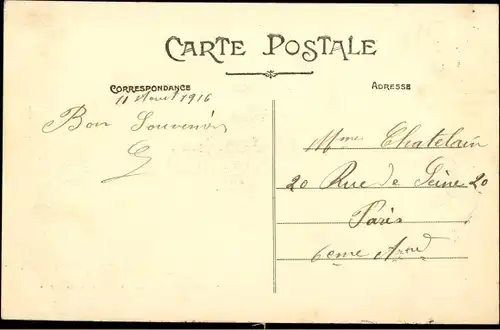 CARTE POSTALE
CORRESPONDANCE
ADRESSE
11 Aout 1916
Bon Souvenir
Mme Chatelain
20 Rue de Seine 20
Paris
6eme Arrd